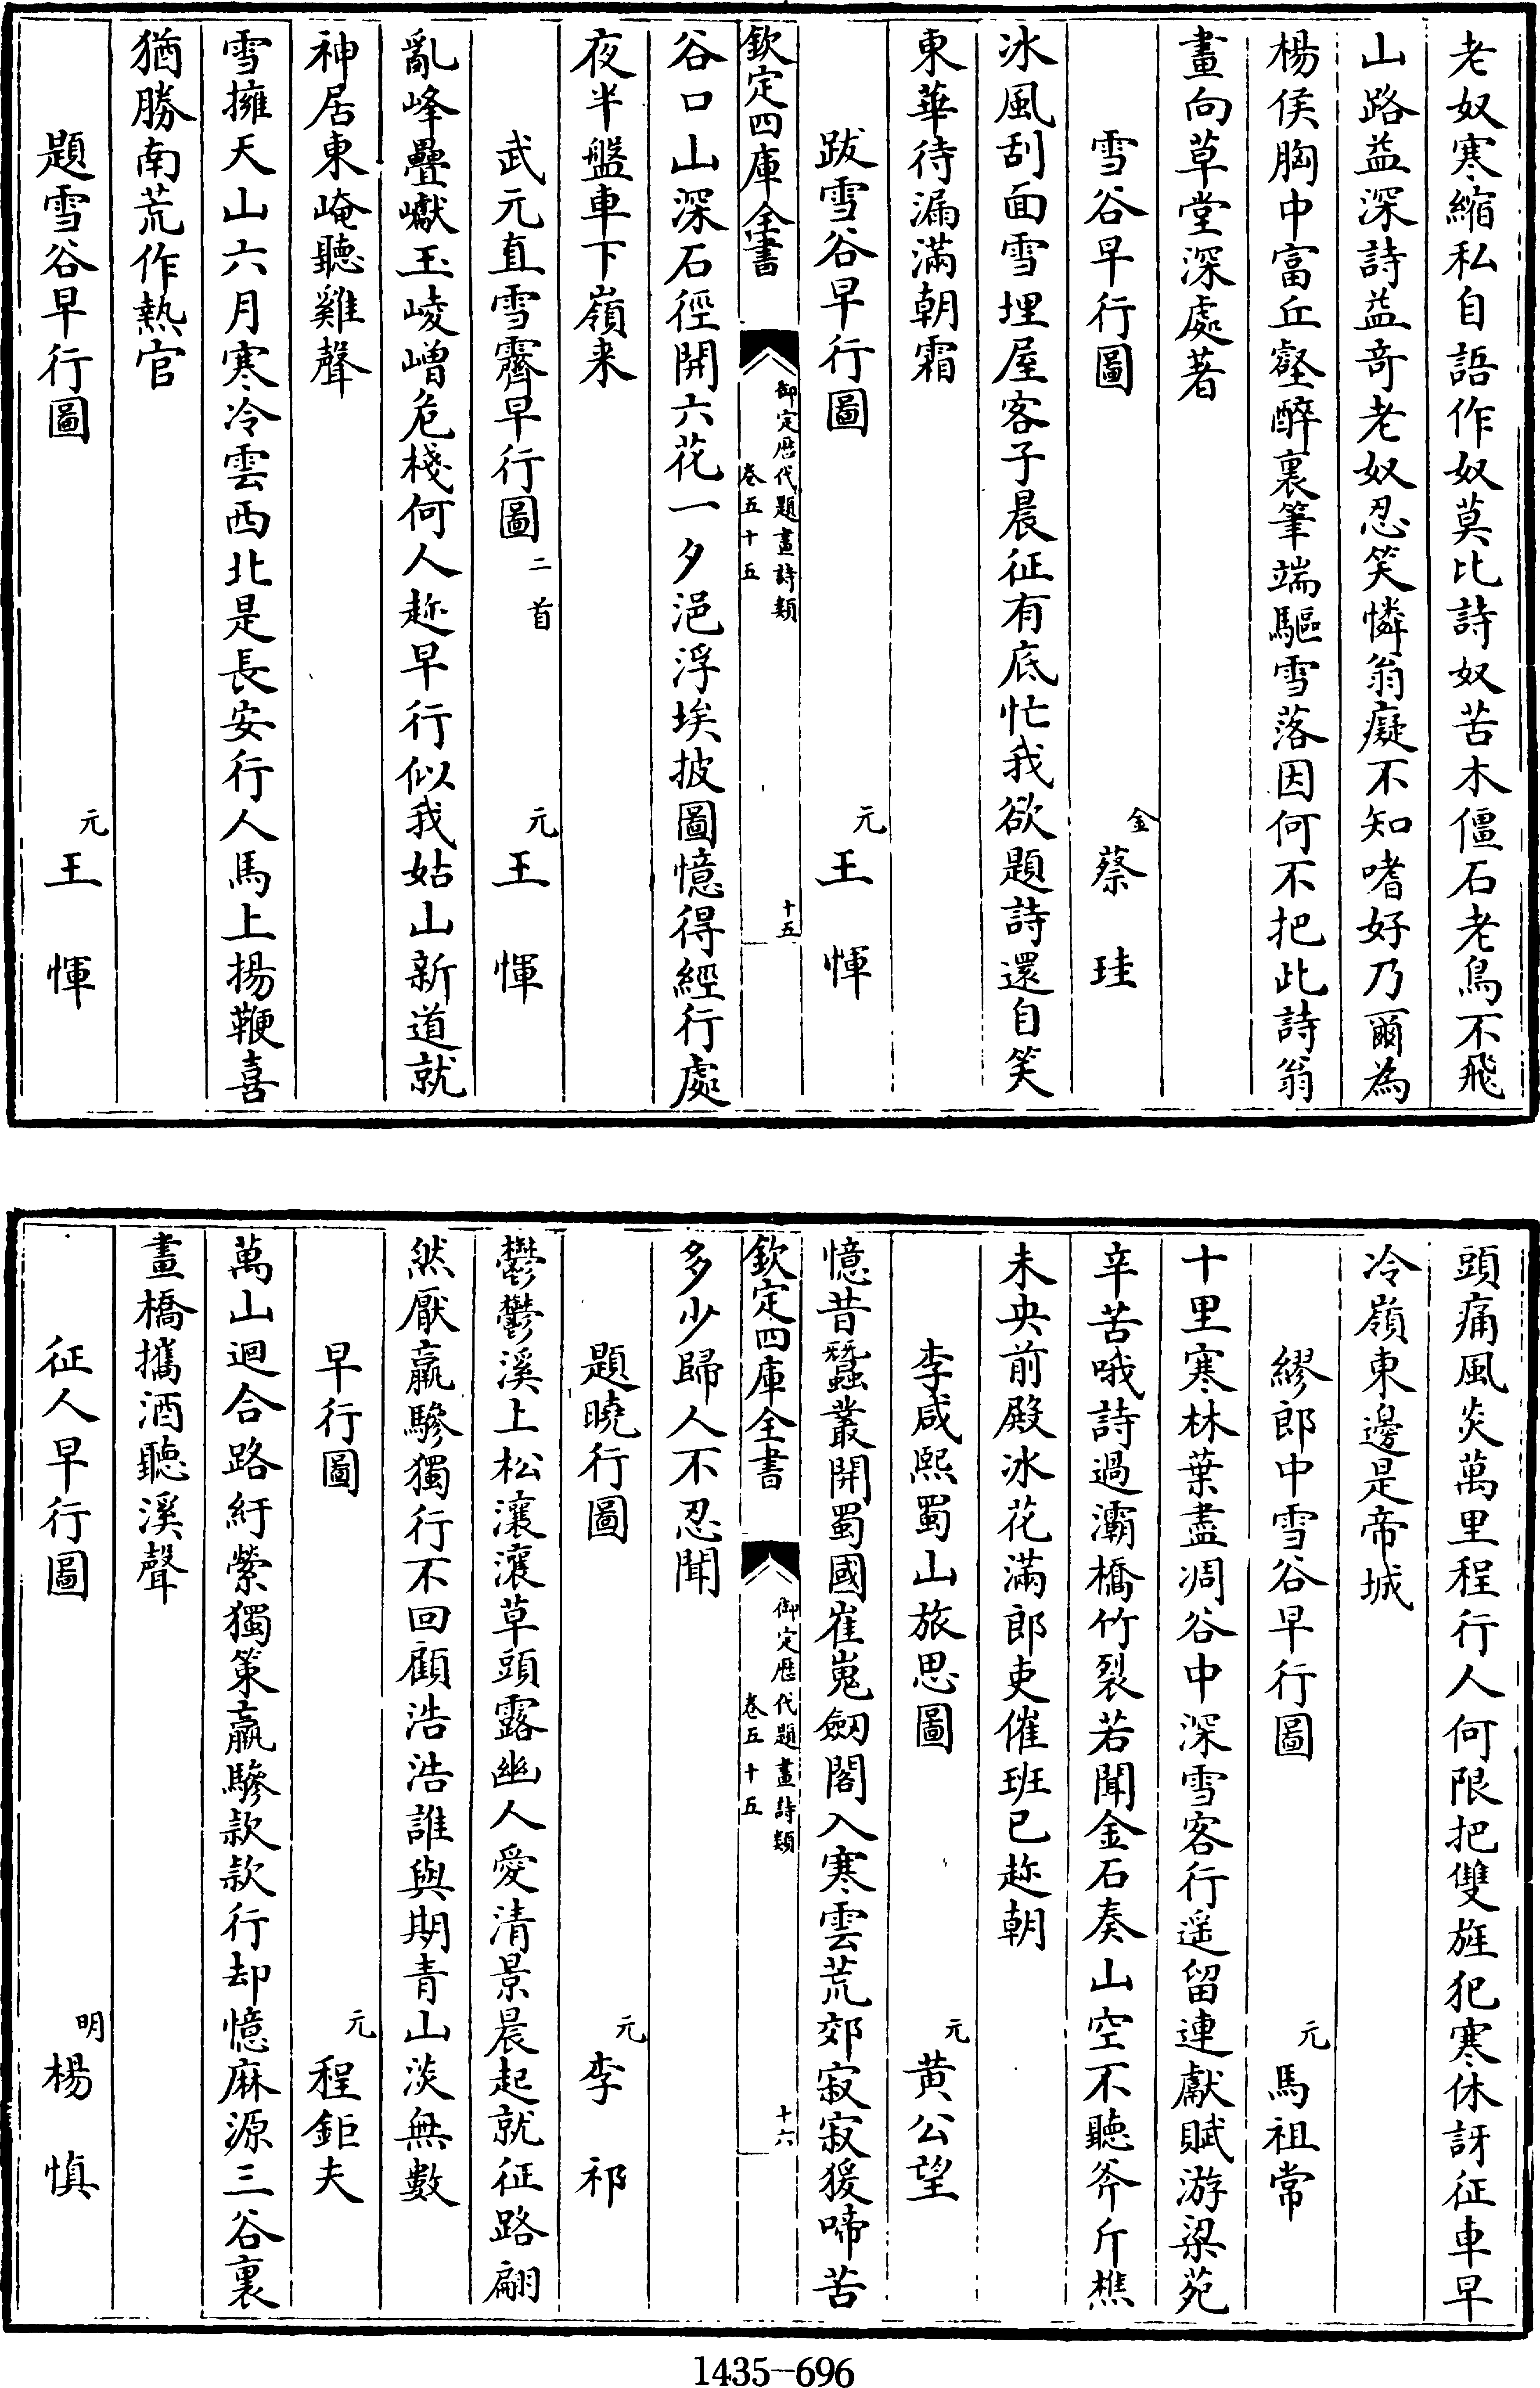 老奴寒縮私自語作奴莫比詩奴苦木僵石老鳥不飛
山路益深詩益奇老奴忍笑憐翁癡不知嗜好乃爾為
楊侯胸中富丘壑醉裏筆端驅雪落因何不把此詩翁
畫向草堂深處著
雪谷早行圖 金 蔡珪
冰風刮面雪埋屋客子晨征有底忙我欲題詩還自笑
東華待漏滿朝霜
跋雪谷早行圖 元 王惲
欽定四庫全書 御定歴代題畫詩類 卷五十五 十五
谷口山深石徑開六花一夕浥浮埃披圖憶得經行處
夜半盤車下嶺来
武元直雪霽早行圖 二首 元 王惲
亂峰疊巘玉崚嶒危棧何人趂早行似我姑山新道就
神居東崦聽雞聲
雪擁天山六月寒冷雲西北是長安行人馬上揚鞭喜
猶勝南荒作熱官
題雪谷早行圖 元 王惲
頭痛風炎萬里程行人何限把雙旌犯寒休訝征車早
冷嶺東邊是帝城
繆郎中雪谷早行圖 元 馬祖常
十里寒林葉盡凋谷中深雪客行遥留連獻賦游梁苑
辛苦哦詩過灞橋竹裂若聞金石奏山空不聽斧斤樵
未央前殿冰花滿郎吏催班已趂朝
李咸熙蜀山旅思圖 元 黄公望
憶昔蠶叢開蜀國崔嵬劒閣入寒雲荒郊寂寂猨啼苦
欽定四庫全書 御定歴代題畫詩類 卷五十五 十六
多少歸人不忍聞
題曉行圖 元 李祁
鬱鬱溪上松瀼瀼草頭露幽人愛清景晨起就征路翩
然厭羸驂獨行不回顧浩浩誰與期青山淡無數
早行圖 元 程鉅夫
萬山迴合路紆縈獨策羸驂款款行却憶麻源三谷裏
畫橋攜酒聽溪聲
征人早行圖 明 楊慎
1435-696